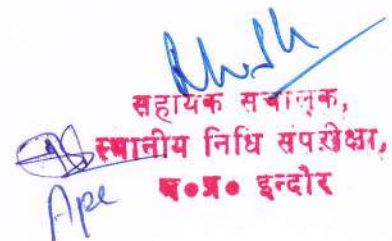 सहायक संचालक,
स्थानीय निधि संपरीक्षा,
म०प्र० इन्दौर